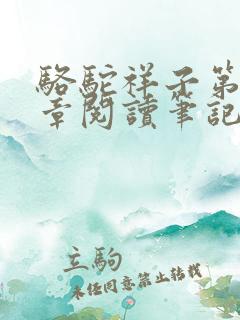 駱駝祥子第
章閱讀筆記
立駒
未經同意禁止轉載